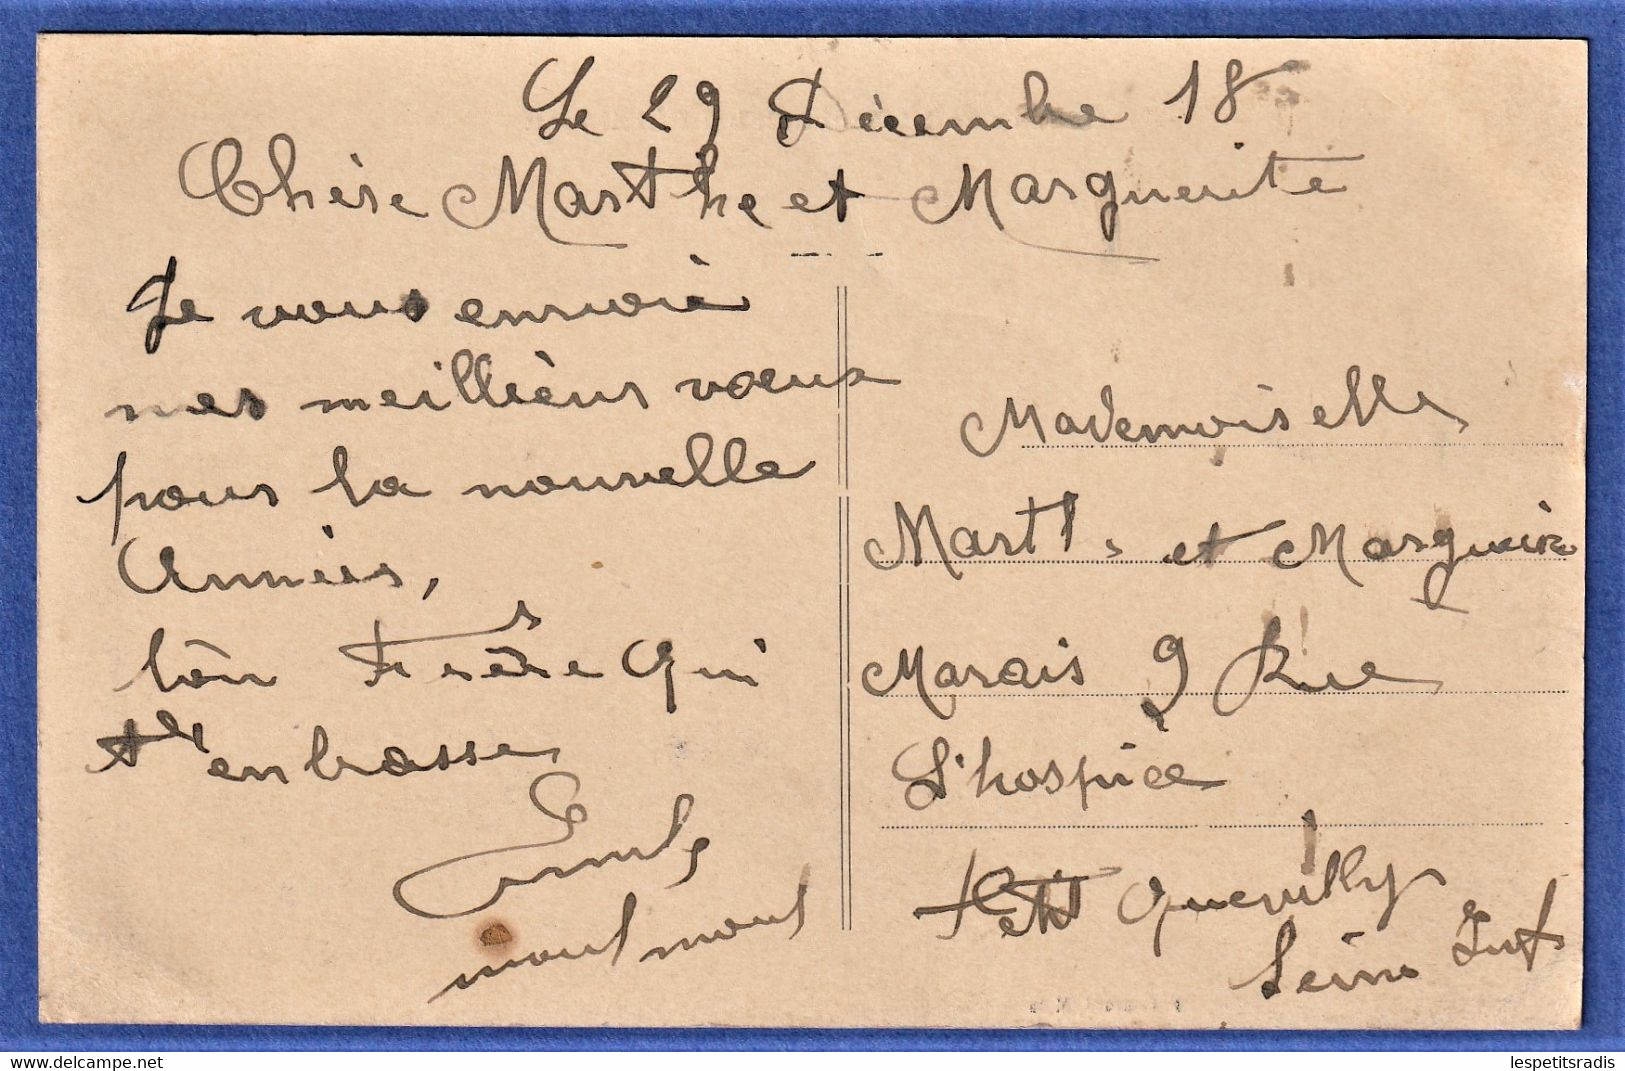 Le 29 Décembre 18
Chère Marthe et Marguerite
Je vous envoie
mes meillieurs voeux
pour la nouvelle
Années,
ton Frère qui
t'enbrasse
Emile
Mademoiselle
Marthe et Marguerite
Marais 9 Rue
L'hospice
Petit Quevilly
Seine Inf
lespetitsradis